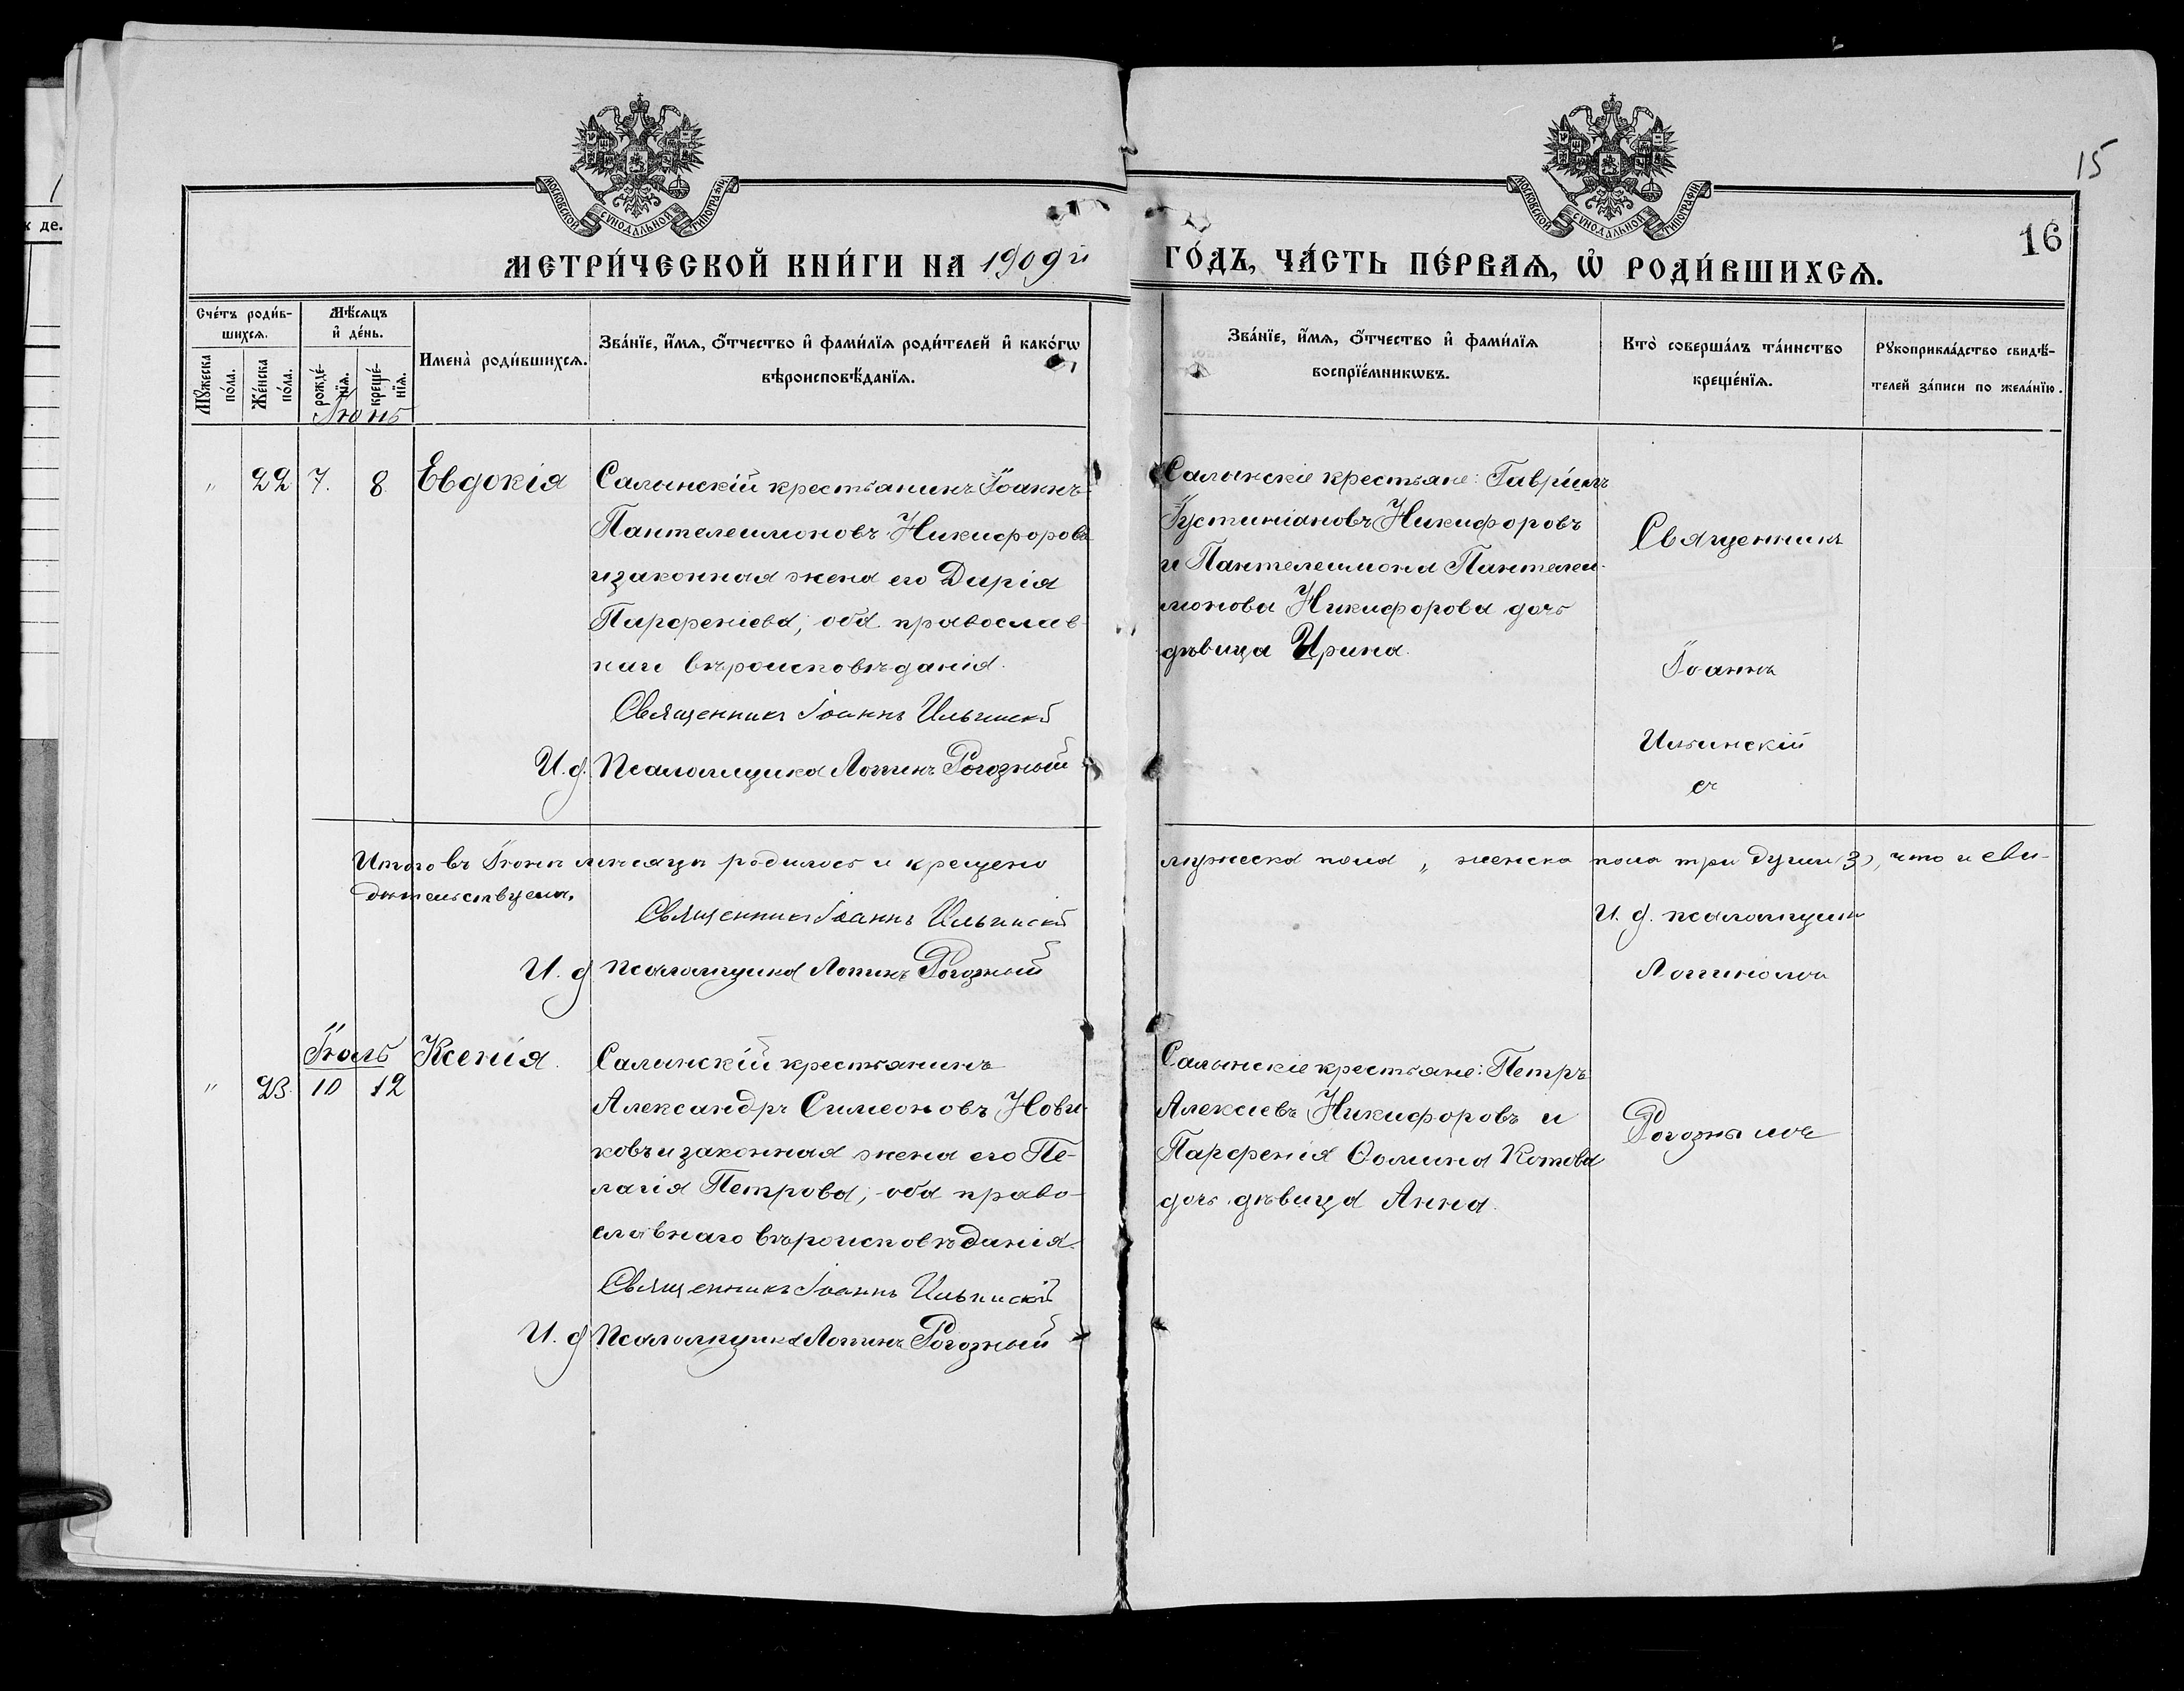 15
16
МОСКОВСКОЙ СѴНОДАЛЬНОЙ ТИПОГРАФІИ
МОСКОВСКОЙ СѴНОДАЛЬНОЙ ТИПОГРАФІИ
МЕТРИ́ЧЕСКОЙ КНИ́ГИ НА 1909й
ГО́ДЪ, ЧА́СТЬ ПЕ́РВАѦ, Ѽ РОДИ́ВШИХСѦ.
Сче́тъ роди́в-
шихсѧ.
Мꙋ́жеска по́ла.
Же́нска по́ла.
Мѣ́сѧцъ
и҆ де́нь.
рожде́-нїѧ.
креще́-нїѧ.
Имена̀ роди́вшихсѧ.
Зва́нїе, и҆́мѧ, ѻ҆́тчество и҆ фами́лїѧ роди́телей и҆ како́гѡ
вѣроисповѣ́данїѧ.
Зва́нїе, и҆́мѧ, ѻ҆́тчество и҆ фами́лїѧ
воспрїе́мникѡвъ.
Кто̀ соверша́лъ та́инство
креще́нїѧ.
Рꙋкоприкла́дство свидѣ́-
телей за́писи по жела́нїю.
Іюнь
" 22 7. 8. Евдокія
Салынскій крестьянинъ Іоаннъ
Пантелеимоновъ Никифоровъ
и законная жена его Дарія
Парфеніева, оба православ-
наго вѣроисповѣданія.
Священникъ Іоаннъ Ильинскій
И. д. Псаломщика Логинъ Рогозный
Салынскіе крестьяне: Гавріилъ
Іустиніановъ Никифоровъ
и Пантелеимона Пантелеи-
монова Никифорова дочь
дѣвица Ирина.
Священникъ
Іоаннъ
Ильинскій
съ
Итого въ Іюнѣ мѣсяцѣ родилось и крещено
мужеска пола " женска пола три души (3), что и сви-
дѣтельствуемъ.
Священникъ Іоаннъ Ильинскій
И. д. псаломщика Логинъ Рогозный
И. д. псаломщик
Логиномъ
Іюль
" 23. 10 12 Ксенія.
Салынскій крестьянинъ
Александръ Симеоновъ Нови-
ковъ и законная жена его Пе-
лагія Петрова, оба право-
славнаго вѣроисповѣданія.
Священникъ Іоаннъ Ильинскій
И. д. Псаломщика Логинъ Рогозный
Салынскіе крестьяне: Петръ
Алексіевъ Никифоровъ и
Парфенія Ѳомина Котова
дочь дѣвица Анна.
Рогознымъ